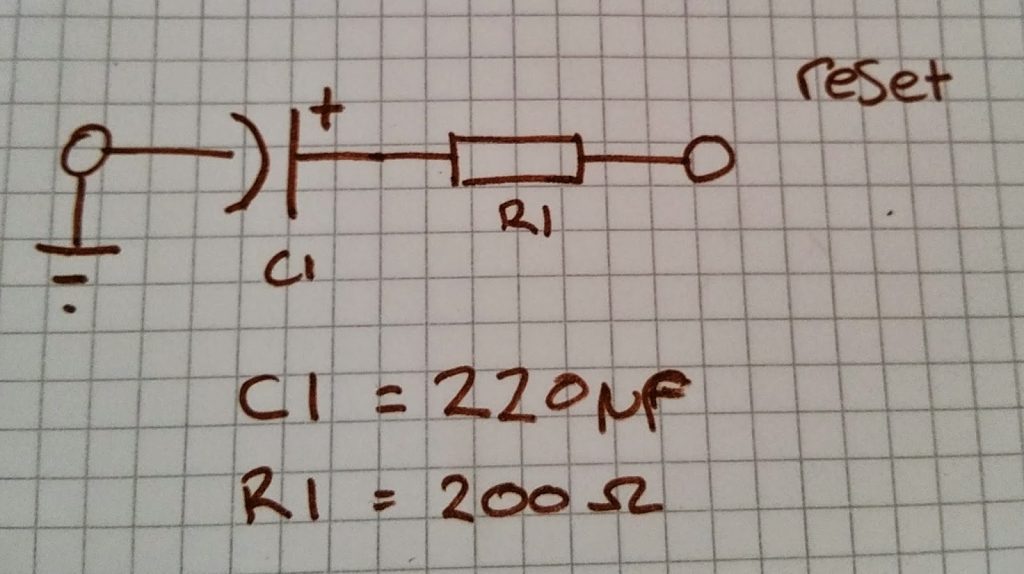 reset
+
R1
C1
C1 = 220µF
R1 = 200Ω